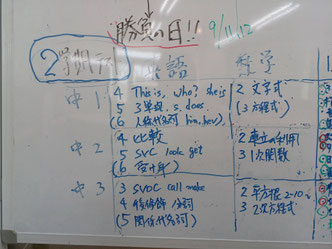 勝負の日!! 9/11,12
2学期 英語 数学
中1
4 This is, who? she is
5 3単現, s. does.
(6 人称代名詞 him, her)
2 文字式
(3 方程式)
中2
4 比較
5 SVC look get
(6
2 連立の利用
3 1次関数
中3
3 SVOC call make
4 後修飾 分詞
(5 関係代名詞)
2 平方根 2-10
3 2次方程式